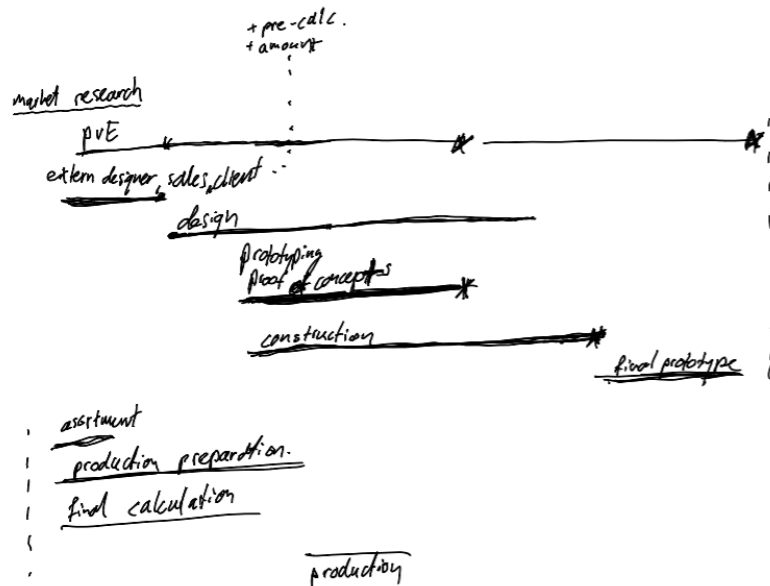 + pre-calc.
+ amount
market research
PvE
extern designer, sales, client
design
prototyping
proof of concepts
construction
final prototype
assrtment
production preparation.
final calculation
production